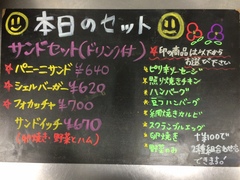 本日のセット
サンドセット(ドリンク付)
★パニーニサンド ¥640
★シェルバーガー ¥620
★フォカッチャ ¥700
サンドイッチ ¥670
(卵焼き・野菜とハム)
★印の商品は以下から
お選び下さい
・ピリ辛ソーセージ
・照り焼きチキン
・ハンバーグ
・豆腐ハンバーグ
・網焼きカルビ
・スクランブルエッグ
・卵焼き
・野菜のみ
+¥100で
2種組合わせも
できます!